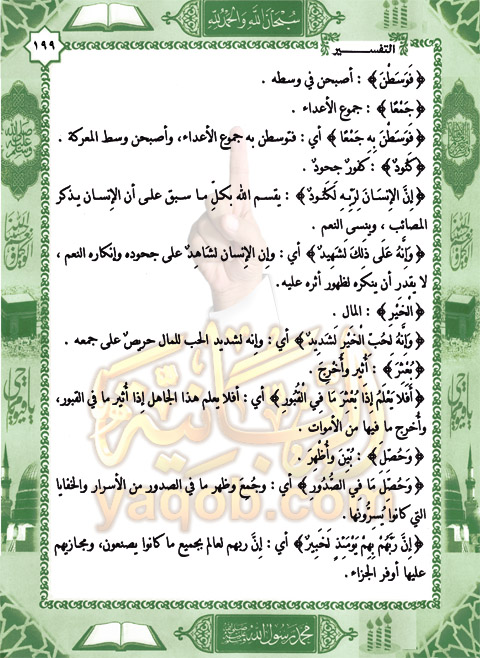 سُبْحَانَ اللَّهِ وَالْحَمْدُ لِلَّهِ
التفسير
١٩٩
﴿فَوَسَطْنَ﴾ : أصبحن في وسطه .
﴿جَمْعًا﴾ : جموع الأعداء .
﴿فَوَسَطْنَ بِهِ جَمْعًا﴾ أي : فتوسطن به جموع الأعداء، وأصبحن وسط المعركة .
﴿كَنُودٌ﴾ : كفورٌ جحودٌ .
﴿إِنَّ الإِنسَانَ لِرَبِّهِ لَكَنُودٌ﴾ : يقسم الله بكلّ ما سبق على أن الإنسان يذكر
المصائب ، وينسى النعم .
﴿وَإِنَّهُ عَلَى ذَلِكَ لَشَهِيدٌ﴾ أي : وإن الإنسان لشاهدٌ على جحوده وإنكاره النعم ،
لا يقدر أن ينكره لظهور أثره عليه .
﴿الْخَيْرِ﴾ : المال .
﴿وَإِنَّهُ لِحُبِّ الْخَيْرِ لَشَدِيدٌ﴾ أي : وإنه لشديد الحب للمال حريصٌ على جمعه .
﴿بُعْثِرَ﴾ : أُثير وأُخرِجَ .
﴿أَفَلَا يَعْلَمُ إِذَا بُعْثِرَ مَا فِي الْقُبُورِ﴾ أي : أفلا يعلم هذا الجاهل إذا أُثير ما في القبور،
وأُخرج ما فيها من الأموات .
﴿وَحُصِّلَ﴾ : بُيِّنَ وأُظْهِرَ .
﴿وَحُصِّلَ مَا فِي الصُّدُورِ﴾ أي : وجُمِعَ وظهر ما في الصدور من الأسرار والخفايا
التي كانوا يُسرُّونها .
﴿إِنَّ رَبَّهُمْ بِهِمْ يَوْمَئِذٍ لَخَبِيرٌ﴾ أي : إنَّ ربهم لعالم بجميع ما كانوا يصنعون، ومجازيهم
عليها أوفر الجزاء .
الربانية
yaqob.com
محمد رسول الله